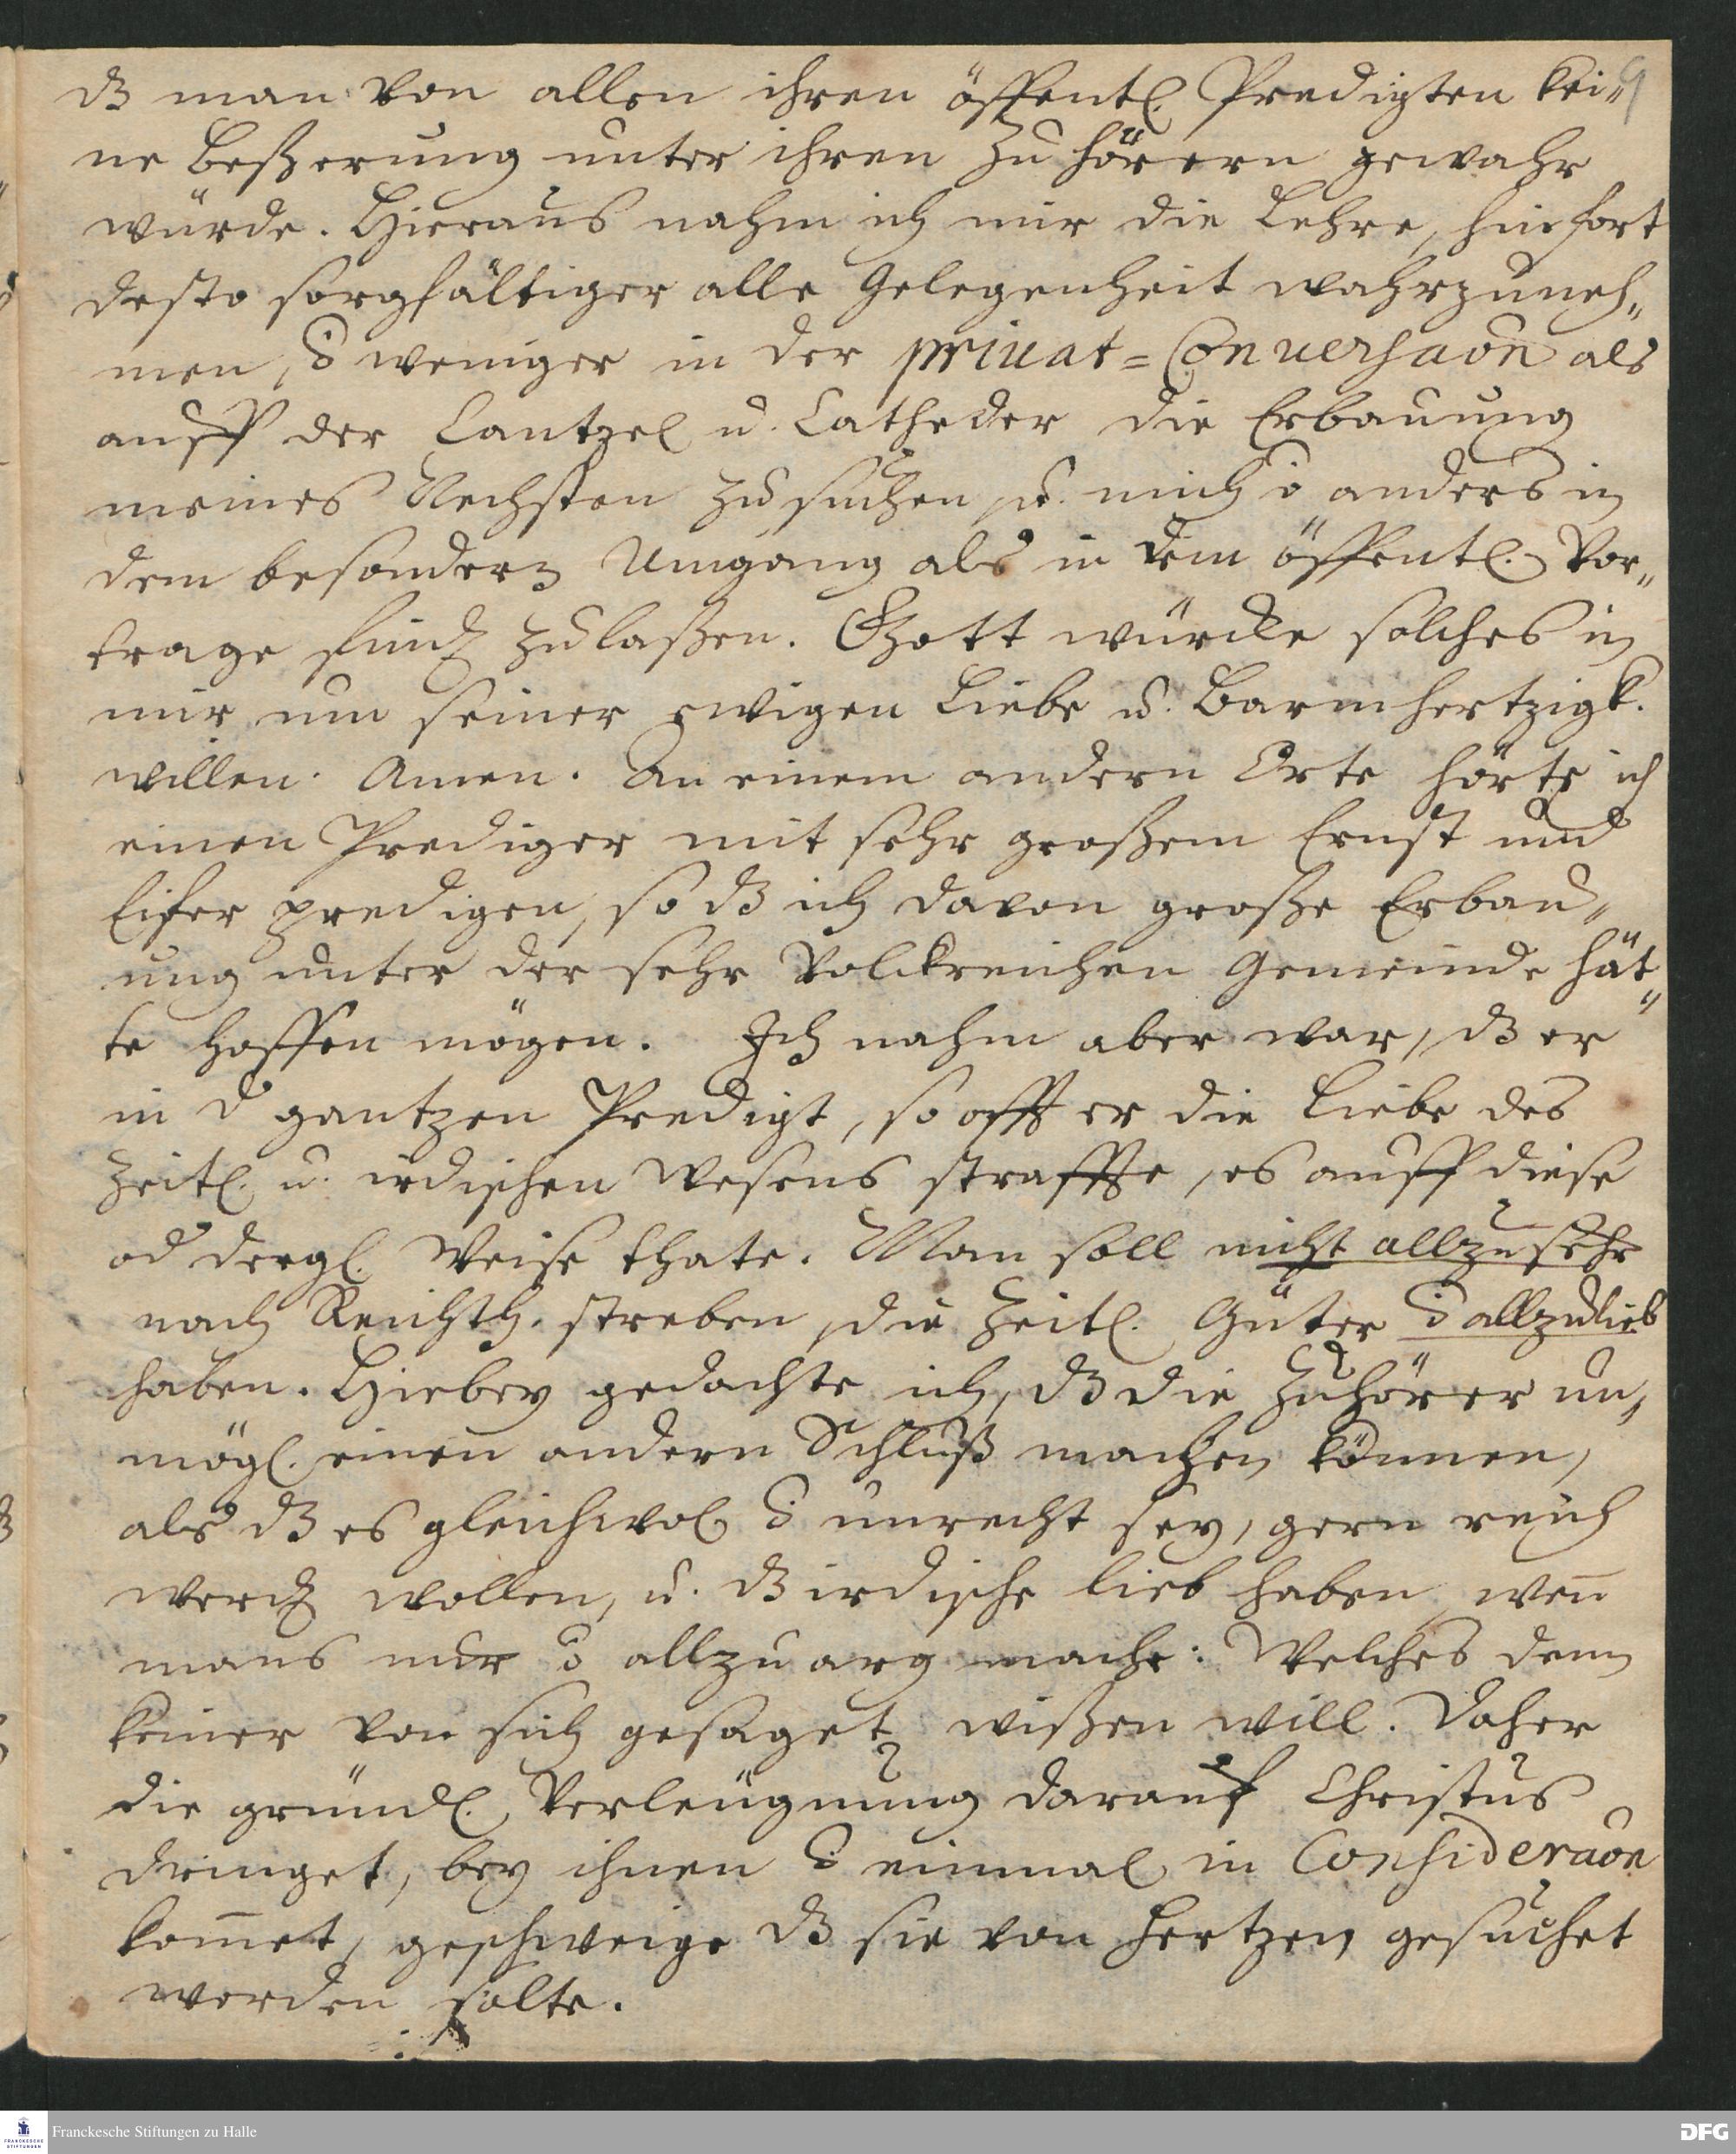 dß man von allen ihren öffentl. Predigten kei„
9
ne Beßerung unter ihren Zuhörern gewahr
würde. Hieraus nahm ich mir die Lehre, hinfort
desto sorgfältiger alle Gelegenheit wahrzuneh„
men, weniger in der privat=Conversaōn als
auff der Cantzel u. Catheder die Erbauung
meines Nechsten zu suchen, u. mich anders in
dem besondern Umgang als in dem öffentl. Vor„
trage find zulaßen. Gott würcke solches in
mir um seiner ewigen Liebe u. Barmhertzigk.
willen. Amen. An einem andern Orte hörte ich
einen Prediger mit sehr großem Ernst und
Eifer predigen, so dß ich davon große Erbau„
ung unter der sehr Volckreichen Gemeinde hät„
te hoffen mögen. Ich nahm aber war, dß er
in d gantzen Predigt, so offt er die Liebe des
Zeitl. u. irdischen Wesens straffte, es auff diese
od dergl. Weise thate. Man soll nicht allzusehr
nach Reichth. streben, die Zeitl. Güter allzulieb
haben. Hiebey gedachte ich, dß die Zuhörer un„
mögl. einen andern Schluß machen können,
als dß es gleichwol unrecht sey, gern reich
werd wollen, u. dß irdische lieb haben, weñ
mans nur allzu arg mache: Welches denn
keiner von sich gesaget wißen will. Daher
die gründl. Verleügnung darauf Christus
dringet, bey ihnen einmal in Consideraōn
kom̄et, geschweige dß sie von Hertzen gesuchet
werden solte.
Franckesche Stiftungen zu Halle
FRANCKESCHE STIFTUNGEN
DFG